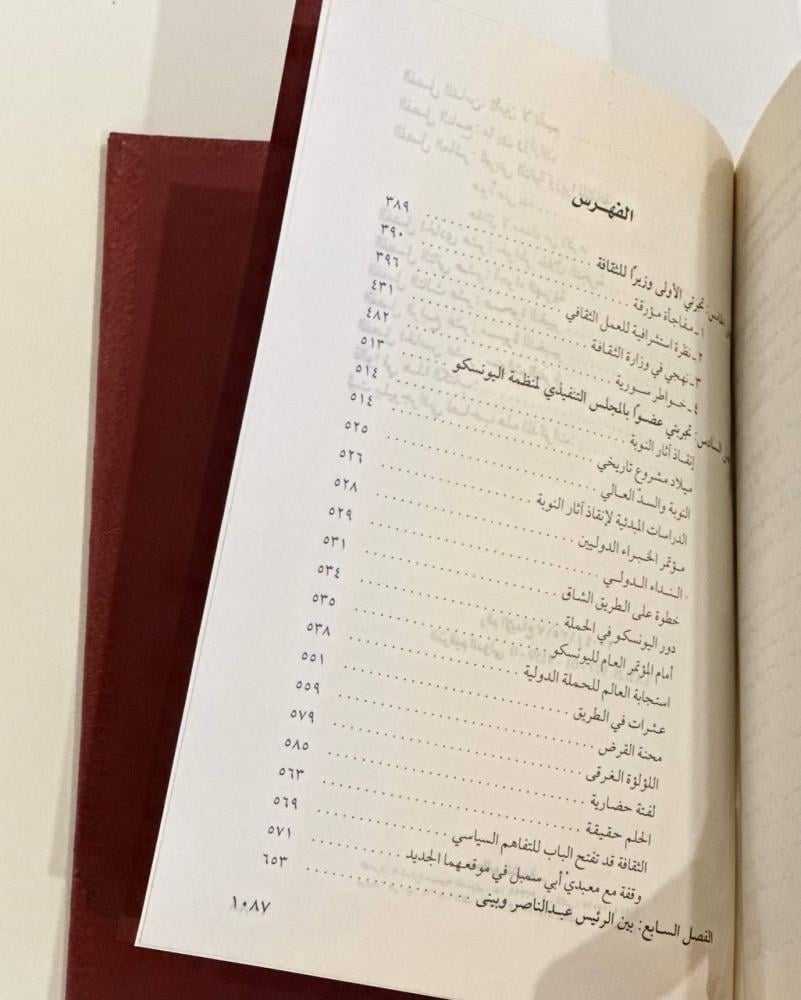 الفهرس
الخامس: تجربتي الأولى وزيرًا للثقافة ٣٨٩
١ـ مفاجأة مؤرقة ٣٩٠
٢ـ نظرة استشرافية للعمل الثقافي ٣٩٦
٣ـ نهجي في وزارة الثقافة ٤٣١
٤ـ خواطر سورية ٤٨٢
السادس: تجربتي عضوًا بالمجلس التنفيذي لمنظمة اليونسكو ٥١٣
إنقاذ آثار النوبة ٥١٤
ميلاد مشروع تاريخي ٥١٤
النوبة والسدّ العالي ٥٢٥
الدراسات المبدئية لإنقاذ آثار النوبة ٥٢٦
مؤتمر الخبراء الدوليين ٥٢٨
النداء الدولي ٥٢٩
خطوة على الطريق الشاق ٥٣١
دور اليونسكو في الحملة ٥٣٤
أمام المؤتمر العام لليونسكو ٥٣٥
استجابة العالم للحملة الدولية ٥٣٨
عثرات في الطريق ٥٥١
محنة القرض ٥٥٩
اللؤلؤة الغرقى ٥٧٩
لفتة حضارية ٥٨٥
الحلم حقيقة ٥٦٣
الثقافة قد تفتح الباب للتفاهم السياسي ٥٦٩
وقفة مع معبديْ أبي سمبل في موقعهما الجديد ٥٧١
الفصل السابع: بين الرئيس عبدالناصر وبيني ٦٥٣
١٠٨٧